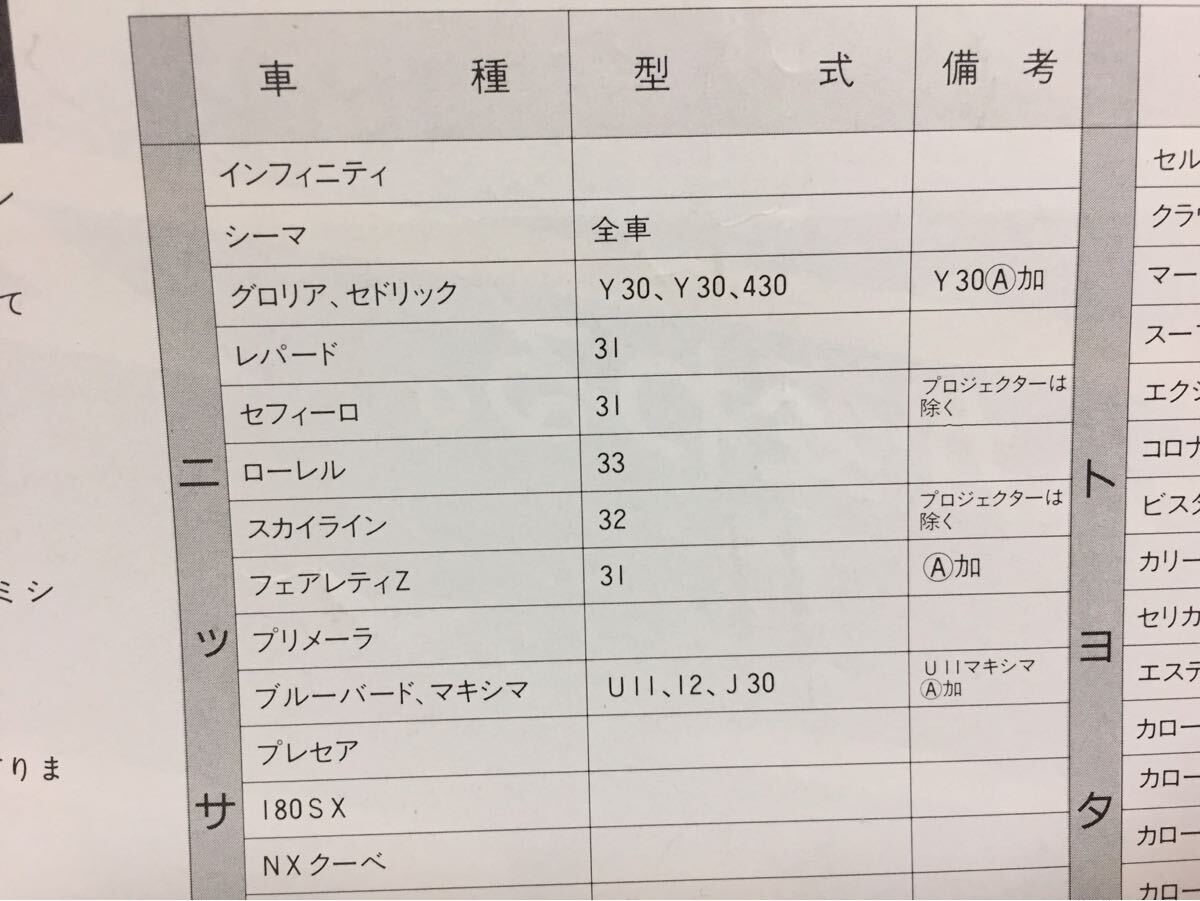 車種 型式 備考
インフィニティ
シーマ 全車
グロリア、セドリック Y30、Y30、430 Y30Ⓐ加
レパード 31
セフィーロ 31 プロジェクターは
除く
ローレル 33
スカイライン 32 プロジェクターは
除く
フェアレティZ 31 Ⓐ加
プリメーラ
ブルーバード、マキシマ U11、12、J30 U11マキシマ
Ⓐ加
プレセア
180SX
NXクーペ
ニッサ
トヨタ
セル
クラウ
マー
スープ
エクシ
コロナ
ビスタ
カリー
セリカ
エステ
カロー
カロー
カロー
カロー
ン
て
ミシ
りま